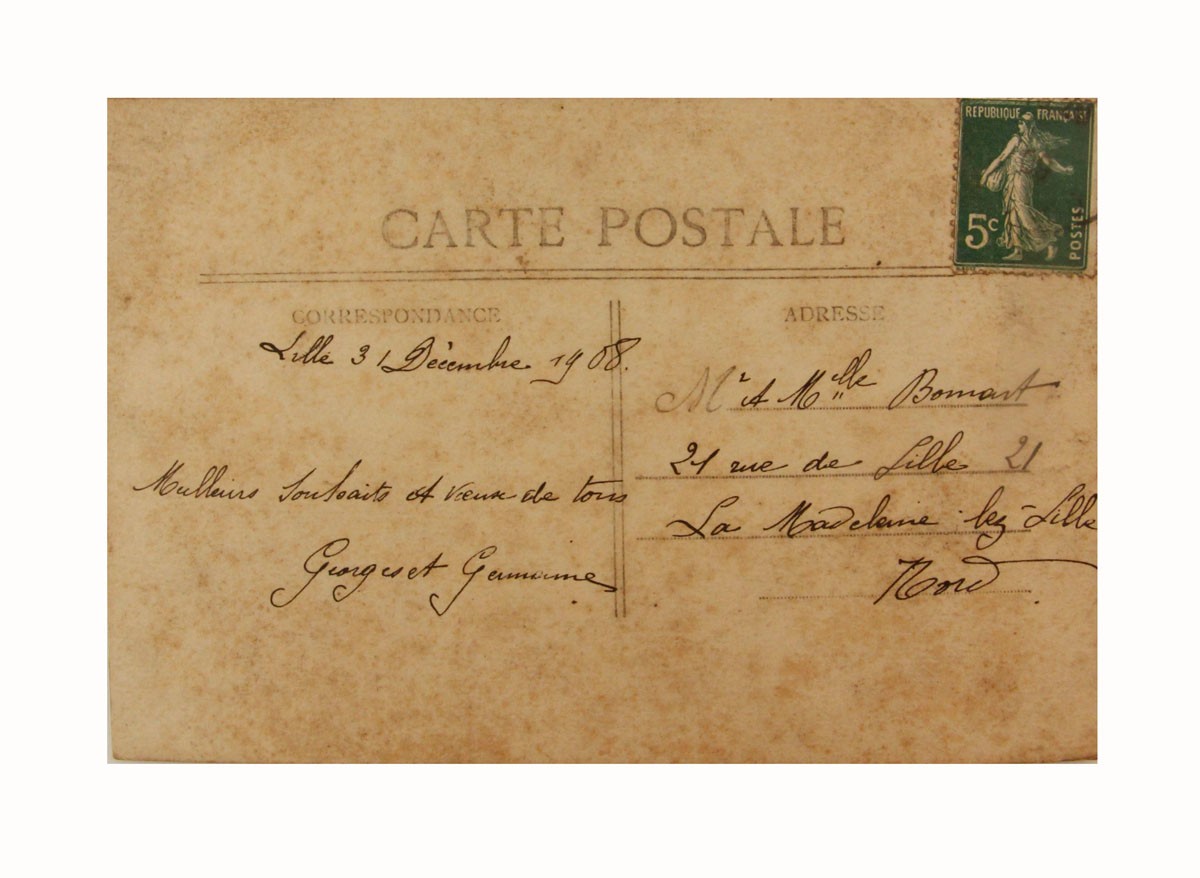 REPUBLIQUE FRANÇAISE
5c
POSTES
CARTE POSTALE
CORRESPONDANCE
Lille 31 Décembre 1908.
Meilleurs souhaits et vœux de tous
Georges et Germaine
ADRESSE
Mr et Melle Bomart
21 rue de Lille 21
La Madeleine lez-Lille
Nord